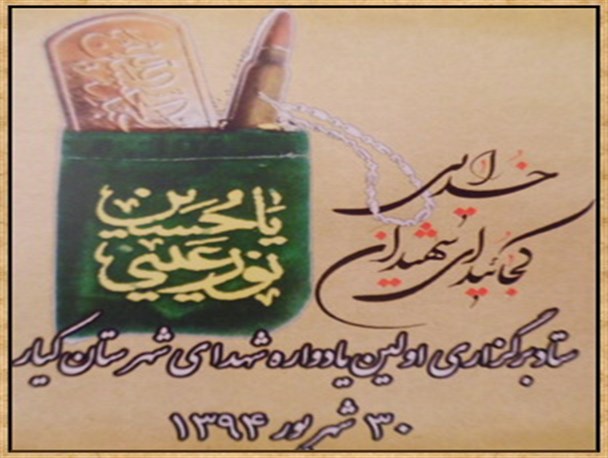 یا حسین
نور عینی
کجائید ای شهیدان
خدایی
ستاد برگزاری اولین یادواره شهدای شهرستان کیار
۳۰ شهریور ۱۳۹۴